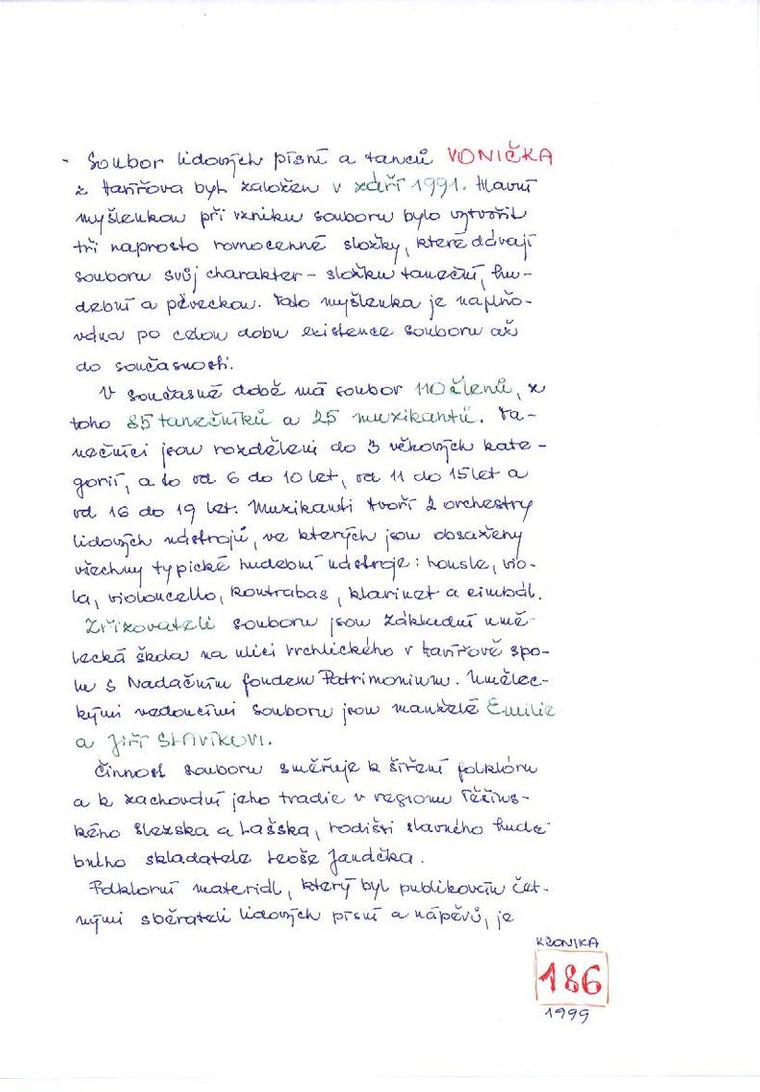 - Soubor lidových písní a tanců VONIČKA
z Havířova byl založen v září 1991. Hlavní
myšlenkou při vzniku souboru bylo vytvořit
tři naprosto rovnocenné složky, které dávají
souboru svůj charakter - složku taneční, hu-
dební a pěveckou. Tato myšlenka je naplňo-
vána po celou dobu existence souboru až
do současnosti.
V současné době má soubor 110 členů, z
toho 85 tanečníků a 25 muzikantů. Ta-
nečníci jsou rozděleni do 3 věkových kate-
gorií, a to od 6 do 10 let, od 11 do 15 let a
od 16 do 19 let. Muzikanti tvoří 2 orchestry
lidových nástrojů, ve kterých jsou obsaženy
všechny typické hudební nástroje: housle, vio-
la, violoncello, kontrabas, klarinet a cimbál.
Zřizovateli souboru jsou Základní umě-
lecká škola na ulici Vrchlického v Havířově spo-
lu s Nadačním fondem Patrimonium. Umělec-
kými vedoucími souboru jsou manželé Emilie
a Jiří SLAVÍKOVI.
Činnost souboru směřuje k šíření folklóru
a k zachování jeho tradic v regionu Těšíns-
kého Slezska a Lašska, rodišti slavného hude
bního skladatele Leoše Janáčka.
Folklorní materiál, který byl publikován čet-
nými sběrateli lidových písní a nápěvů, je
KRONIKA
186
1999